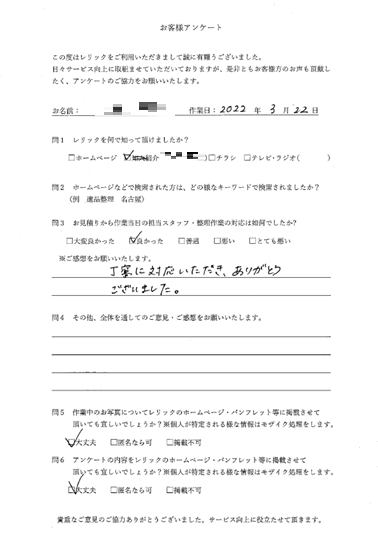 お客様アンケート
この度はレリックをご利用いただきまして誠に有難うございました。
日々サービス向上に取組ませていただいておりますが、是非ともお客様方のお声も頂戴し
たく、アンケートのご協力をお願いいたします。
お名前： 作業日：2022 年 3 月 22 日
問1 レリックを何で知って頂けましたか？
□ホームページ ☑知人紹介 ）□チラシ □テレビ・ラジオ（ ）
問2 ホームページなどで検索された方は、どの様なキーワードで検索されましたか？
（例 遺品整理 名古屋）
問3 お見積りから作業当日の担当スタッフ・整理作業の対応は如何でしたか？
□大変良かった ☑良かった □普通 □悪い □とても悪い
※ご感想をお願いいたします。
丁寧に対応いただき、ありがとう
ございました。
問4 その他、全体を通してのご意見・ご感想をお願いいたします。
問5 作業中のお写真についてレリックのホームページ・パンフレット等に掲載させて
頂いても宜しいでしょうか？※個人が特定される様な情報はモザイク処理をします。
☑大丈夫 □匿名なら可 □掲載不可
問6 アンケートの内容をレリックのホームページ・パンフレット等に掲載させて
頂いても宜しいでしょうか？※個人が特定される様な情報はモザイク処理をします。
☑大丈夫 □匿名なら可 □掲載不可
貴重なご意見のご協力ありがとうございました。サービス向上に役立たせて頂きます。